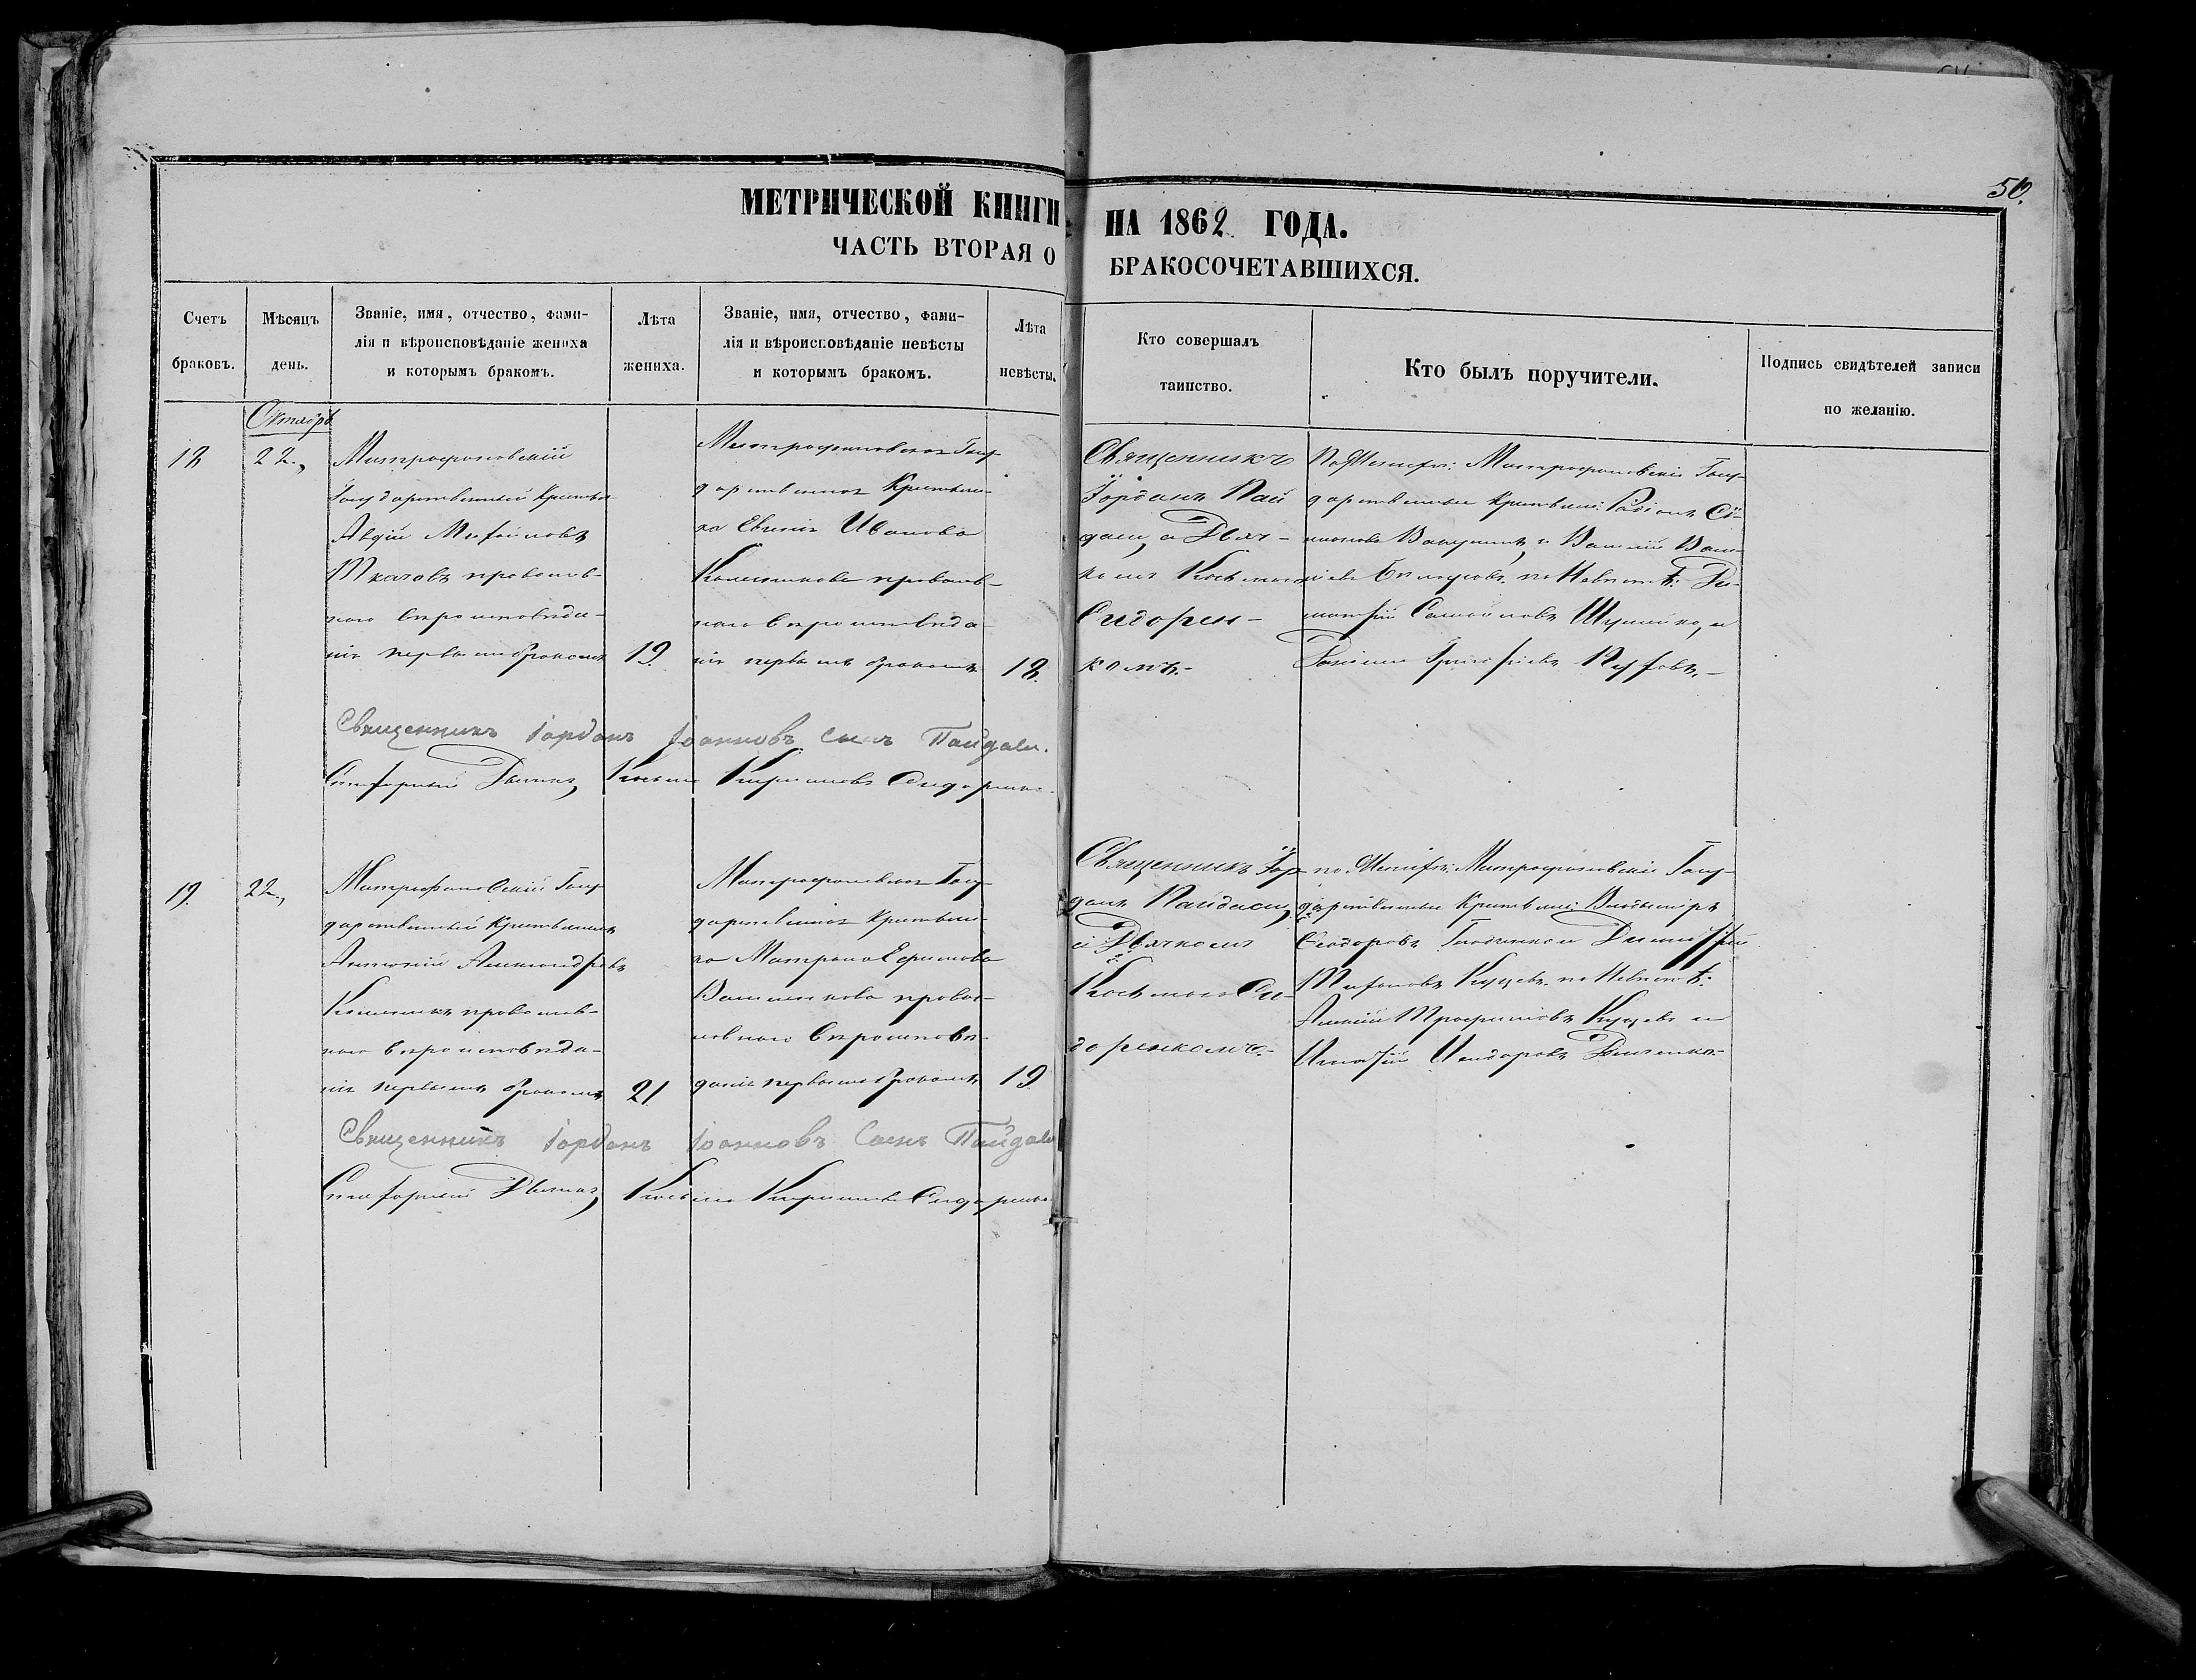 50.
МЕТРИЧЕСКОЙ КНИГИ НА 1862 ГОДА.
ЧАСТЬ ВТОРАЯ О БРАКОСОЧЕТАВШИХСЯ.
Счетъ
браковъ.
Мѣсяцъ
день.
Званіе, имя, отчество, фами-
лія и вѣроисповѣданіе жениха
и которымъ бракомъ.
Лѣта
жениха.
Званіе, имя, отчество, фами-
лія и вѣроисповѣданіе невѣсты
и которымъ бракомъ.
Лѣта
невѣсты.
Кто совершалъ
таинство.
Кто былъ поручители.
Подпись свидѣтелей записи
по желанію.
Октябрь
18
22.
Митрофановскій
Государственный Крестья
Авдій Михайловъ
Ткачовъ православ-
наго вѣроисповѣда-
нія первымъ бракомъ
19.
Митрофановская Госу-
дарственная Крестьян-
ка Евгенія Иванова
Калашникова православ-
наго вѣроисповѣда-
нія первымъ бракомъ
18.
Священникъ
Іорданъ Пай
даси, а Дьяч-
комъ Косьмою
Сидорен-
комъ.
По Женихѣ: Митрофановскіе Госу-
дарственные Крестьяне: Родіонъ
и Василій Васи-
по Невѣстѣ: Ди-
митрій Самойловъ и
Григорьевъ
Священникъ Іорданъ Іоанновъ сынъ Пайдаси.
Дьячекъ, Косьма Кириловъ Сидоренко.
19.
22.
Митрофановскій Госу-
дарственный Крестьянинъ
Антоній Александровъ
православ-
наго вѣроисповѣда-
нія первымъ бракомъ
21.
Митрофановская Госу-
дарственная Крестьян-
ка Матрона Ефимова
правос-
лавнаго вѣроисповѣ-
данія первымъ бракомъ
19.
Священникъ Іор-
данъ Пайдаси,
а Дьячкомъ
Косьмою Си-
доренкомъ.
по Женихѣ: Митрофановскіе Госу-
дарственные Крестьяне: Владиміръ
Ѳеодоровъ и Димитрій
Куцевъ. по Невѣстѣ:
Трофимовъ Куцевъ и
Игнатій
Священникъ Іорданъ Іоанновъ Сынъ Пайдаси
Дьячекъ, Косьма Кириловъ Сидоренко